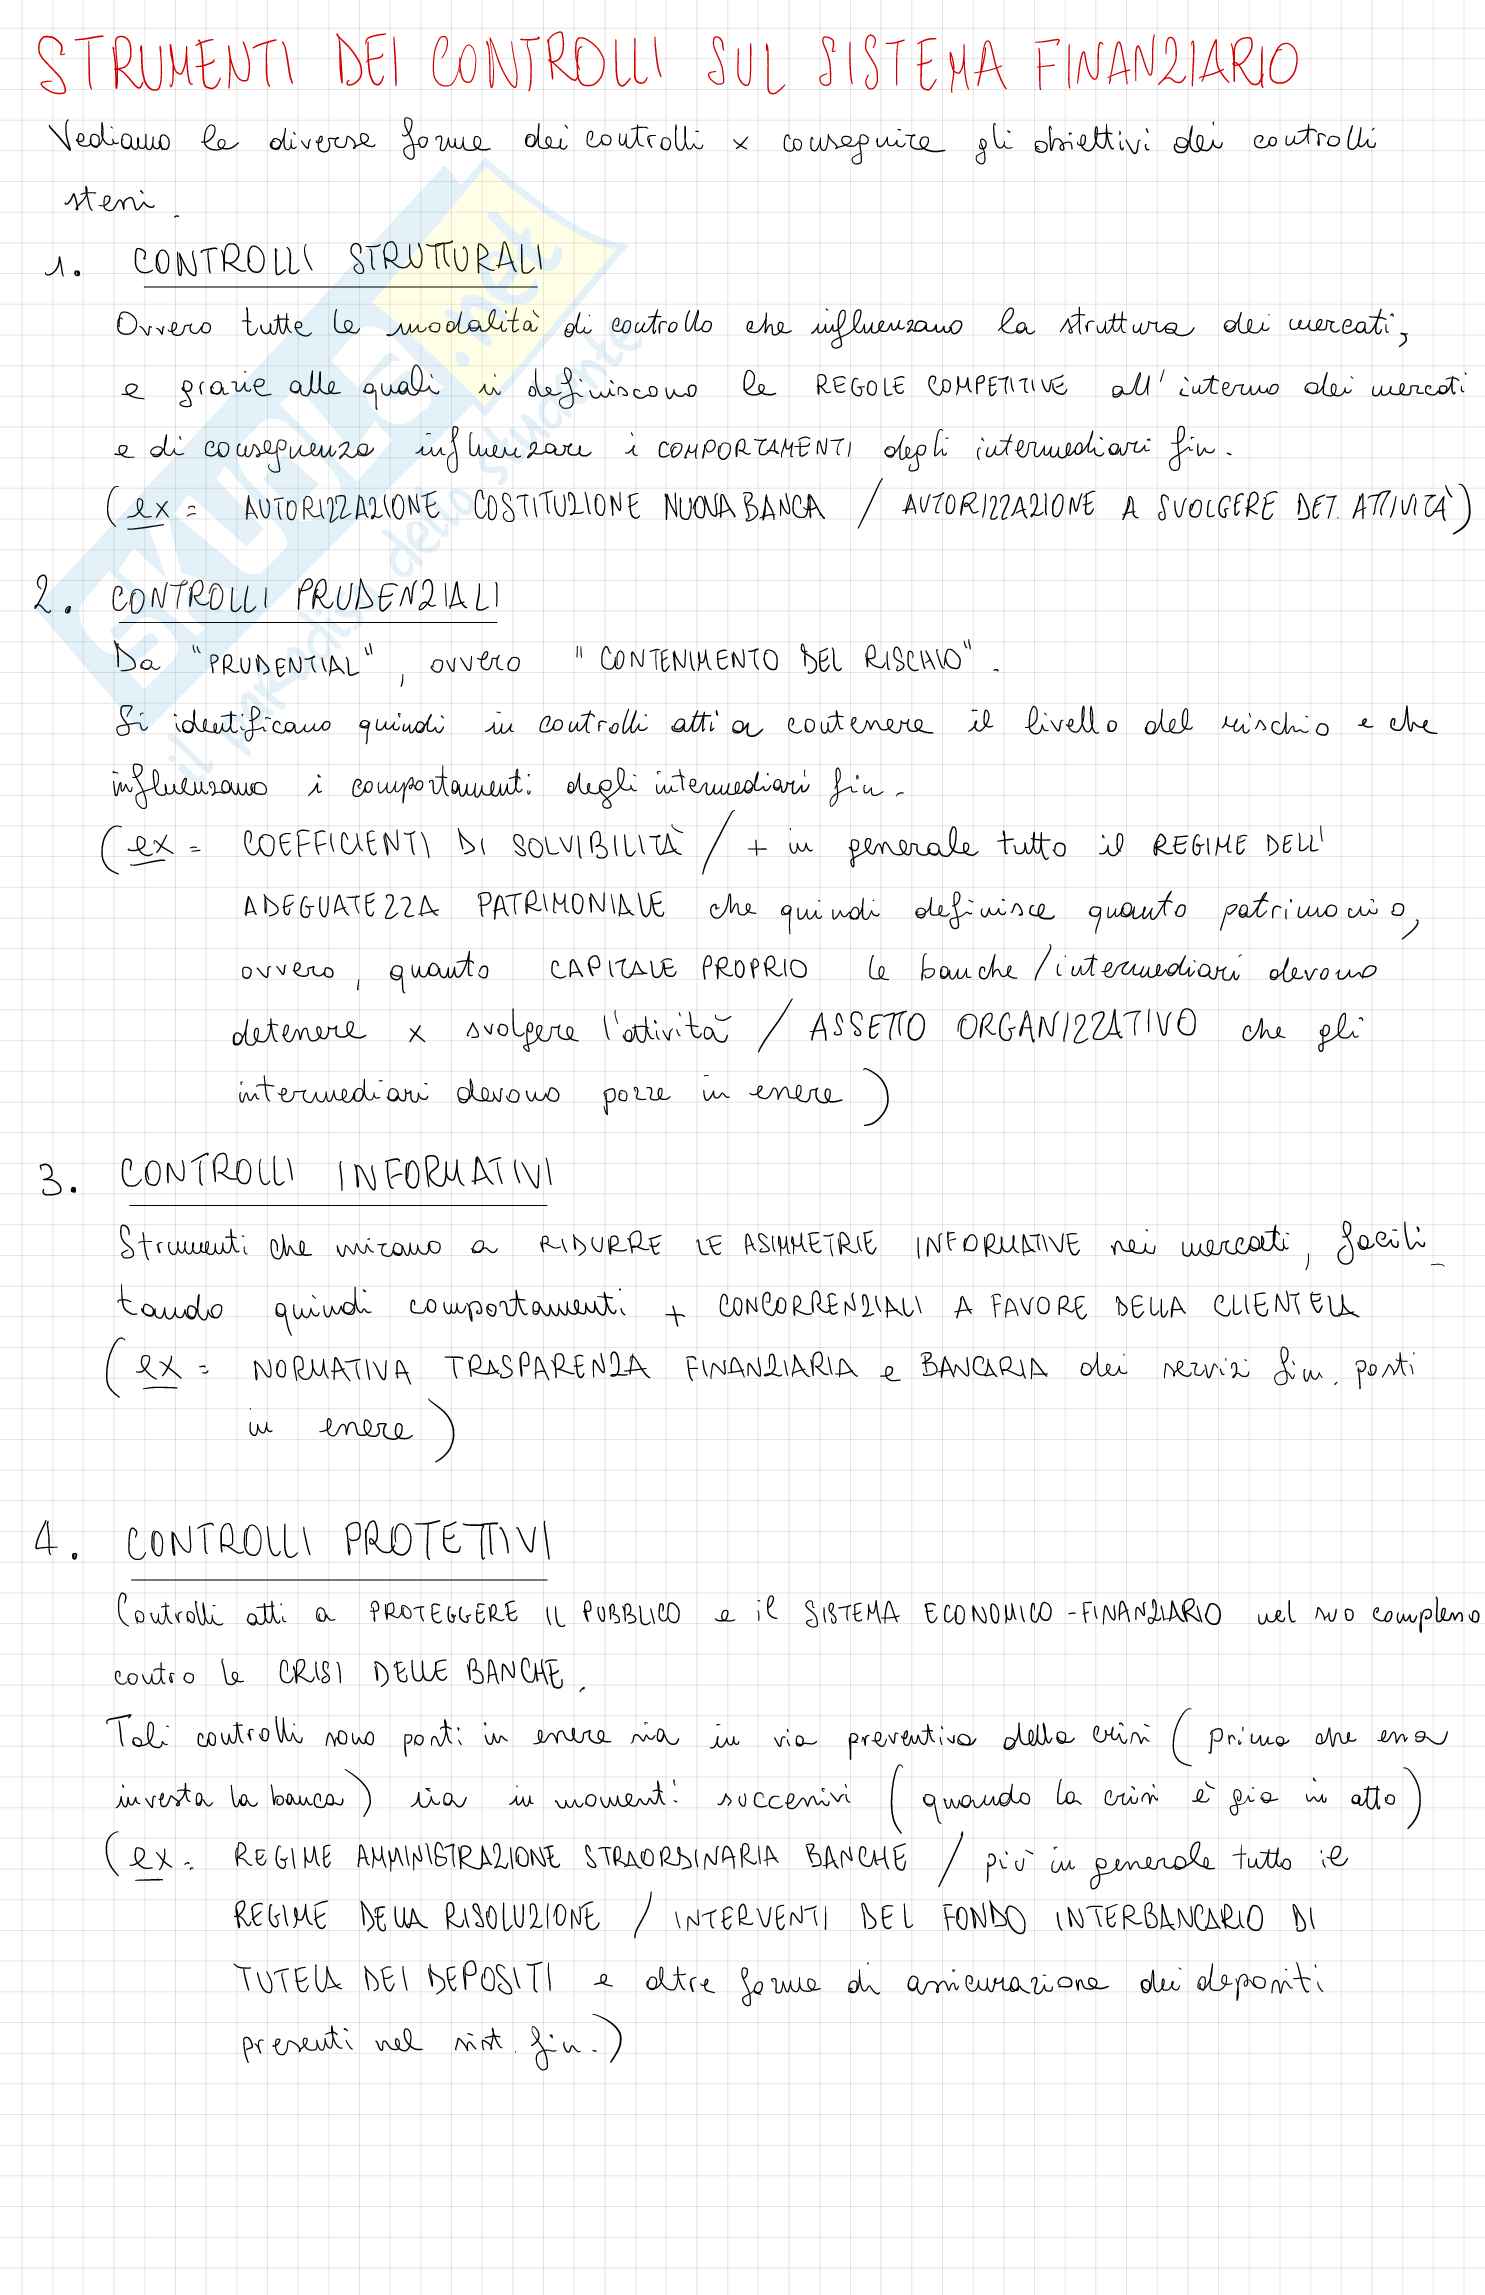 STRUMENTI DEI CONTROLLI SUL SISTEMA FINANZIARIO
Vediamo le diverse forme dei controlli x conseguire gli obiettivi dei controlli
stessi.
1. CONTROLLI STRUTTURALI
Ovvero tutte le modalità di controllo che influenzano la struttura dei mercati,
e grazie alle quali si definiscono le REGOLE COMPETITIVE all'interno dei mercati
e di conseguenza influenzare i COMPORTAMENTI degli intermediari fin.
(ex = AUTORIZZAZIONE COSTITUZIONE NUOVA BANCA / AUTORIZZAZIONE A SVOLGERE DET. ATTIVITÀ)
2. CONTROLLI PRUDENZIALI
Da "PRUDENTIAL", ovvero "CONTENIMENTO DEL RISCHIO".
Si identificano quindi in controlli atti a contenere il livello del rischio e che
influenzano i comportamenti degli intermediari fin.
(ex = COEFFICIENTI DI SOLVIBILITÀ / + in generale tutto il REGIME DELL'
ADEGUATEZZA PATRIMONIALE che quindi definisce quanto patrimonio,
ovvero, quanto CAPITALE PROPRIO le banche/intermediari devono
detenere x svolgere l'attività / ASSETTO ORGANIZZATIVO che gli
intermediari devono porre in essere)
3. CONTROLLI INFORMATIVI
Strumenti che mirano a RIDURRE LE ASIMMETRIE INFORMATIVE nei mercati, facili_
tando quindi comportamenti + CONCORRENZIALI A FAVORE DELLA CLIENTELA
(ex = NORMATIVA TRASPARENZA FINANZIARIA e BANCARIA dei servizi fin. posti
in essere)
4. CONTROLLI PROTETTIVI
Controlli atti a PROTEGGERE IL PUBBLICO e il SISTEMA ECONOMICO-FINANZIARIO nel suo complesso
contro le CRISI DELLE BANCHE.
Tali controlli sono posti in essere sia in via preventiva della crisi (prima che essa
investa la banca) sia in momenti successivi (quando la crisi è già in atto)
(ex = REGIME AMMINISTRAZIONE STRAORDINARIA BANCHE / più in generale tutto il
REGIME DELLA RISOLUZIONE / INTERVENTI DEL FONDO INTERBANCARIO DI
TUTELA DEI DEPOSITI e altre forme di assicurazione dei depositi
presenti nel sist. fin.)
SKUOLA.net
il paradiso dello studente